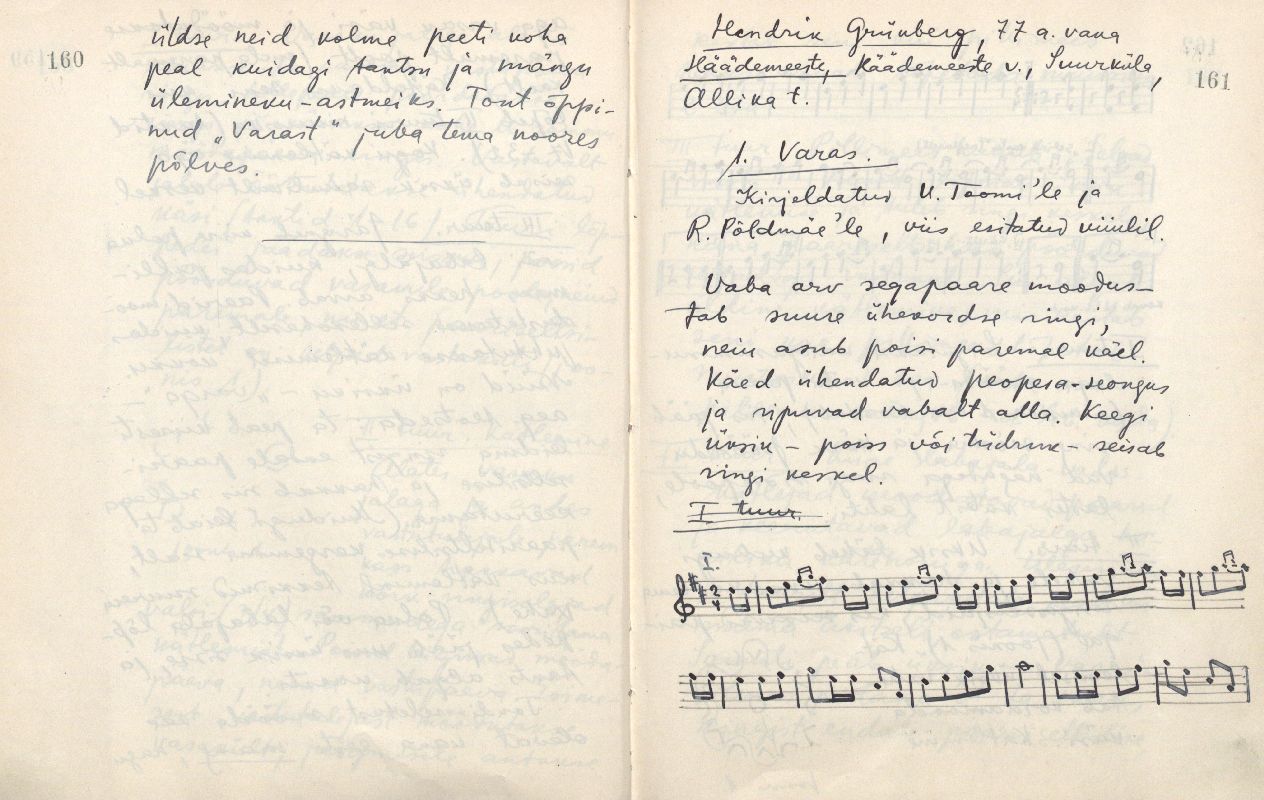 160
üldse neid kolme peeti koha
peal kuidagi tantsu ja mängu
ülemineku-astmeiks. Tont õppi-
nud „Varast“ juba tema noores
põlves.
161
Hendrik Grünberg, 77 a. vana
Häädemeeste, Häädemeeste v., Suurküla,
Allika t.
1. Varas.
Kirjeldatud U. Toomi'le ja
R. Põldmäe'le, viis esitatud viiulil.
Vaba arv segapaare moodus-
tab suure ühekordse ringi,
neiu asub poisi paremal käel.
Käed ühendatud peopesa-seongus
ja ripuvad vabalt alla. Keegi
üksik – poiss või tüdruk – seisab
ringi keskel.
I tuur.
I.
2
4